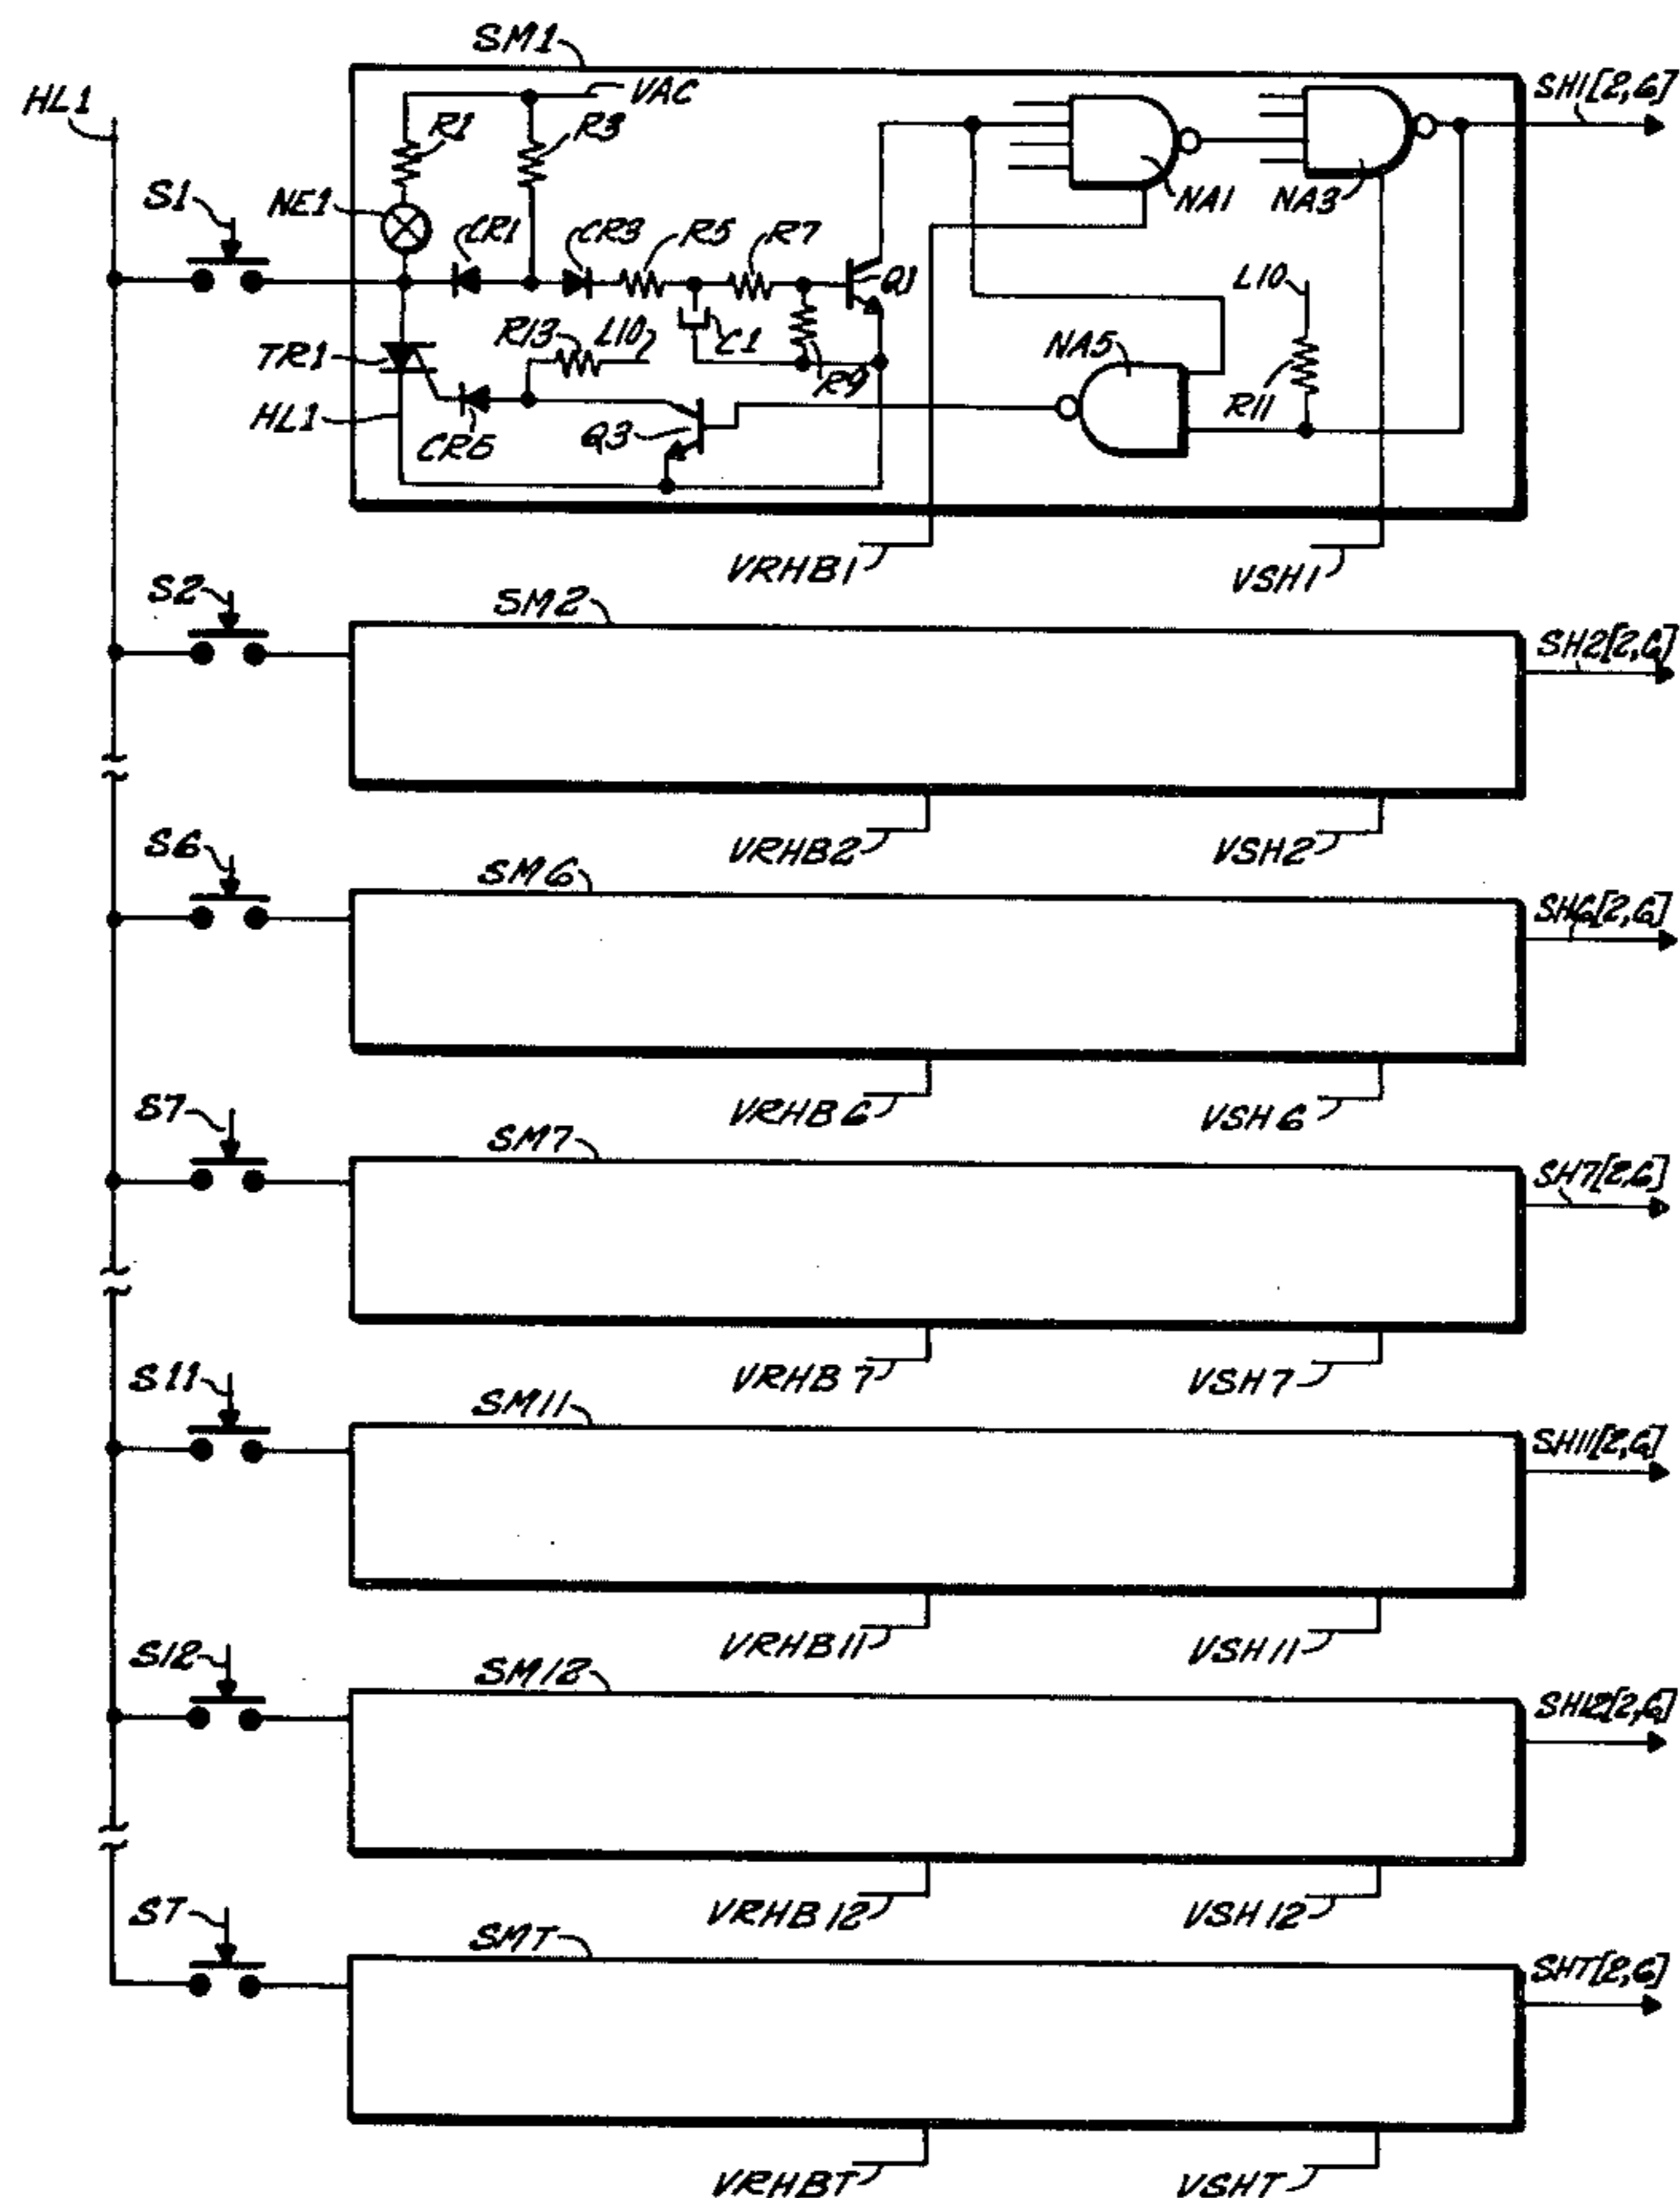 SM1
HL1
VAC
SH1[2,6]
R1
R3
S1
NE1
CR1
CR3
R5
R7
Q1
NA1
NA3
L10
R13
L10
C1
NA5
TR1
R9
R11
HL1
CR5
Q3
VRHB1
VSH1
S2
SM2
SH2[2,6]
VRHB2
VSH2
S6
SM6
SH6[2,6]
VRHB6
VSH6
S7
SM7
SH7[2,6]
VRHB7
VSH7
S11
SM11
SH11[2,6]
VRHB11
VSH11
S12
SM12
SH12[2,6]
VRHB12
VSH12
ST
SMT
SHT[2,6]
VRHBT
VSHT